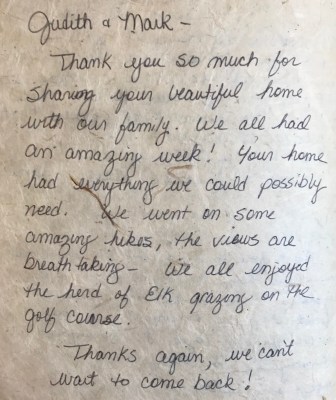 Judith & Mark -
Thank you so much for
sharing your beautiful home
with our family. We all had
an amazing week! Your home
had everything we could possibly
need. We went on some
amazing hikes, the views are
breathtaking - We all enjoyed
the herd of Elk grazing on the
golf course.
Thanks again, we can't
wait to come back!